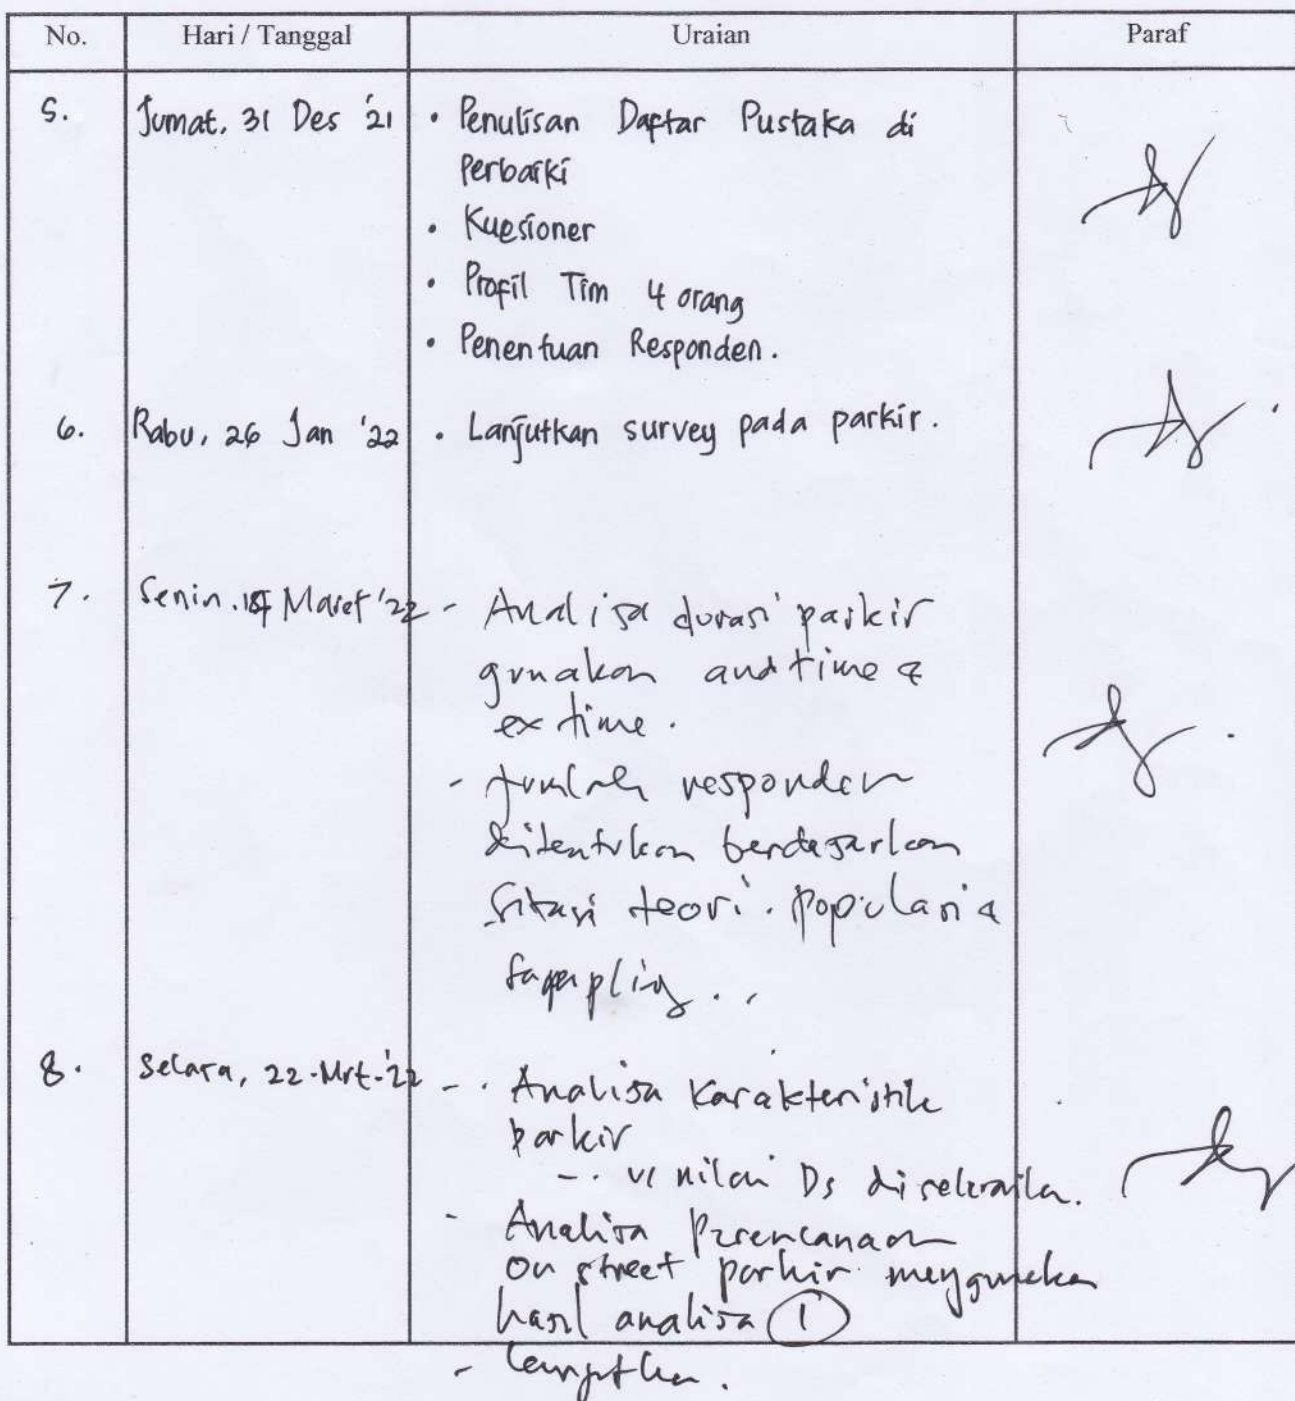 No. Hari / Tanggal Uraian Paraf
5. Jumat, 31 Des '21 • Penulisan Daftar Pustaka di
Perbaiki
• Kuesioner
• Profil Tim 4 orang
• Penentuan Responden.
6. Rabu, 26 Jan '22 • Lanjutkan survey pada parkir.
7. Senin. Maret '22 - Analisa durasi parkir
gunakan time &
ex time.
- Jumlah responden
ditentukan berdasarkan
sitasi teori. populasi &
sampling..
8. Selasa, 22-Mrt-'22 - Analisa Karakteristik
parkir
nilai Ds
- Analisa Perencanaan
on street parkir menggunakan
hasil analisa 1
- lanjutkan.